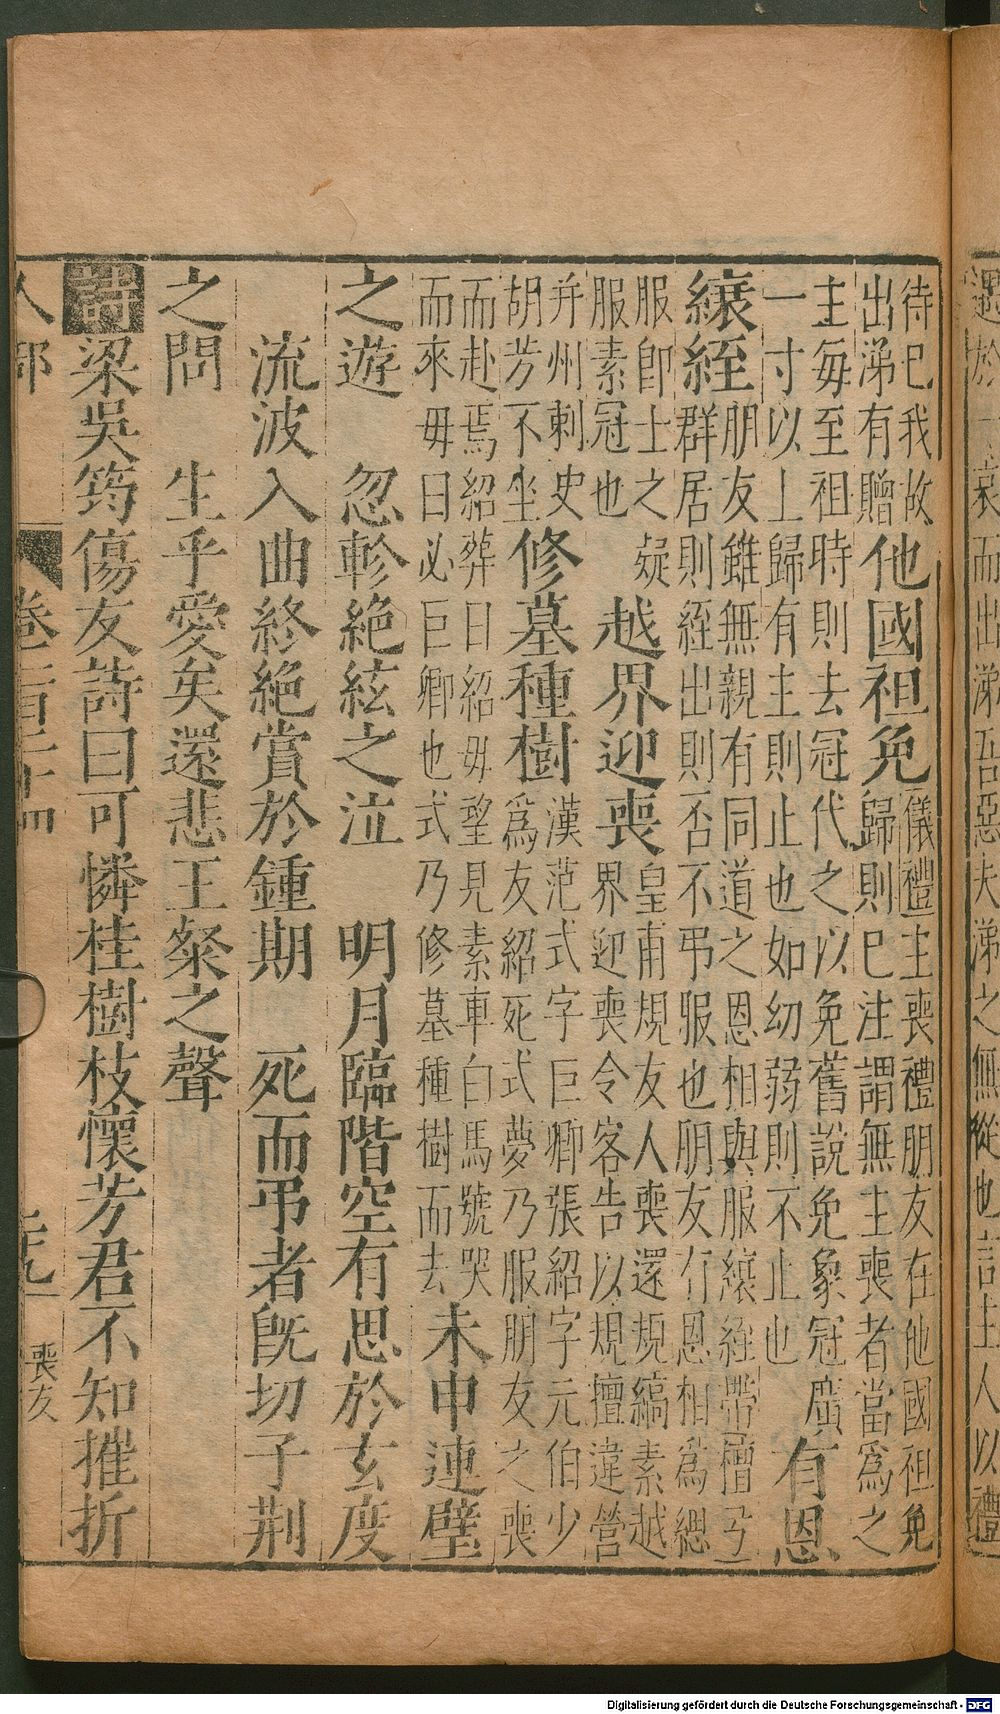 遇於一哀而出涕吾惡夫涕之無從也 士人以禮
待已我故
出涕有贈
他國袒免
儀禮主喪禮朋友在他國袒免
歸則已注謂無主喪者當爲之
主每至袒時則去冠代之以免舊說免象冠廣
一寸以上歸有主則止也如幼弱則不止也
有恩
縗絰
朋友雖無親有同道之恩相與服縗絰帶檀弓
群居則絰出則否不弔服也朋友有恩相爲緦
服即士之疑
服素冠也
越界迎喪
皇甫規友人喪還規縞素越
界迎喪令客告以規擅違營
并州刺史
胡芳不坐
修墓種樹
漢范式字巨卿張紹字元伯少
爲友紹死式夢乃服朋友之喪
而赴焉紹葬日紹毋望見素車白馬號哭
而來毋曰必巨卿也式乃修墓種樹而去
未申連璧
之遊 忽軫絶絃之泣 明月臨階空有思於玄度
流波入曲終絶賞於鍾期 死而弔者旣切子荆
之問 生乎愛矣還悲王粲之聲
詩梁吳筠傷友詩曰可憐桂樹枝懷芳君不知摧折
人部 喪友
Digitalisierung gefördert durch die Deutsche Forschungsgemeinschaft - DFG